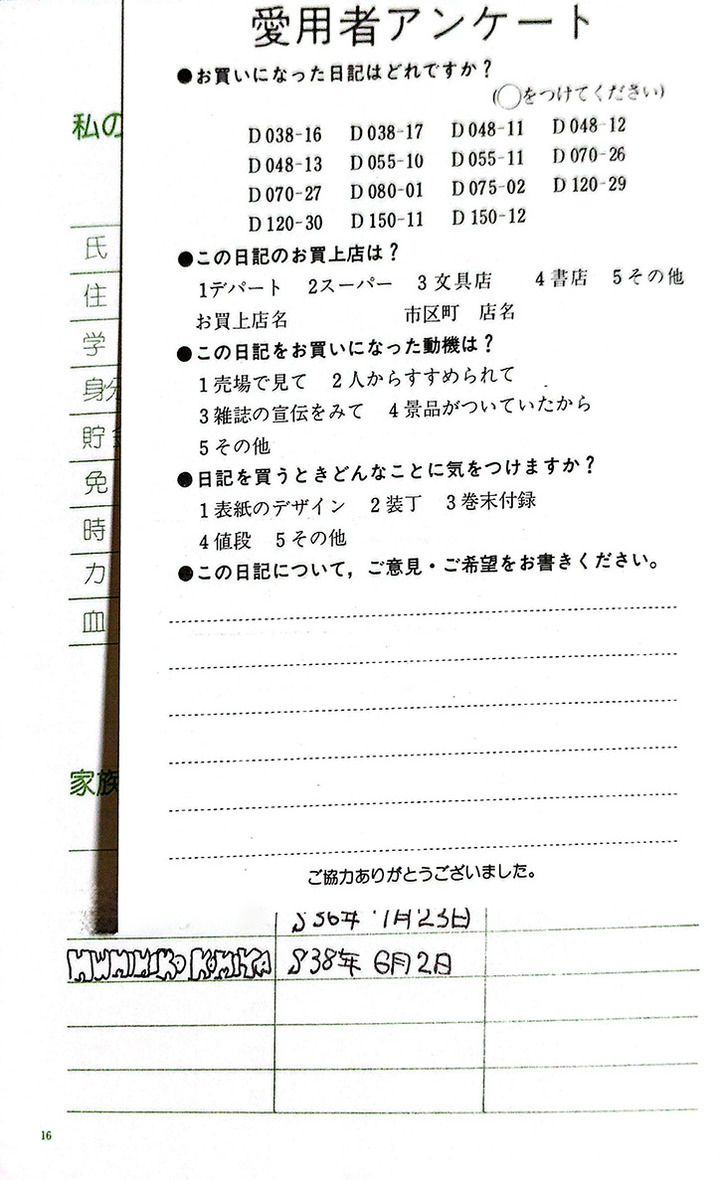 愛用者アンケート
●お買いになった日記はどれですか?
(◯をつけてください)
D038-16 D038-17 D048-11 D048-12
D048-13 D055-10 D055-11 D070-26
D070-27 D080-01 D075-02 D120-29
D120-30 D150-11 D150-12
●この日記のお買上店は?
1デパート 2スーパー 3文具店 4書店 5その他
お買上店名 市区町 店名
●この日記をお買いになった動機は?
1売場で見て 2人からすすめられて
3雑誌の宣伝をみて 4景品がついていたから
5その他
●日記を買うときどんなことに気をつけますか?
1表紙のデザイン 2装丁 3巻末付録
4値段 5その他
●この日記について,ご意見・ご希望をお書きください。
ご協力ありがとうございました。
私の
氏
住
学
身分
貯
免
時
力
血
家族
S38年 6月2日
16